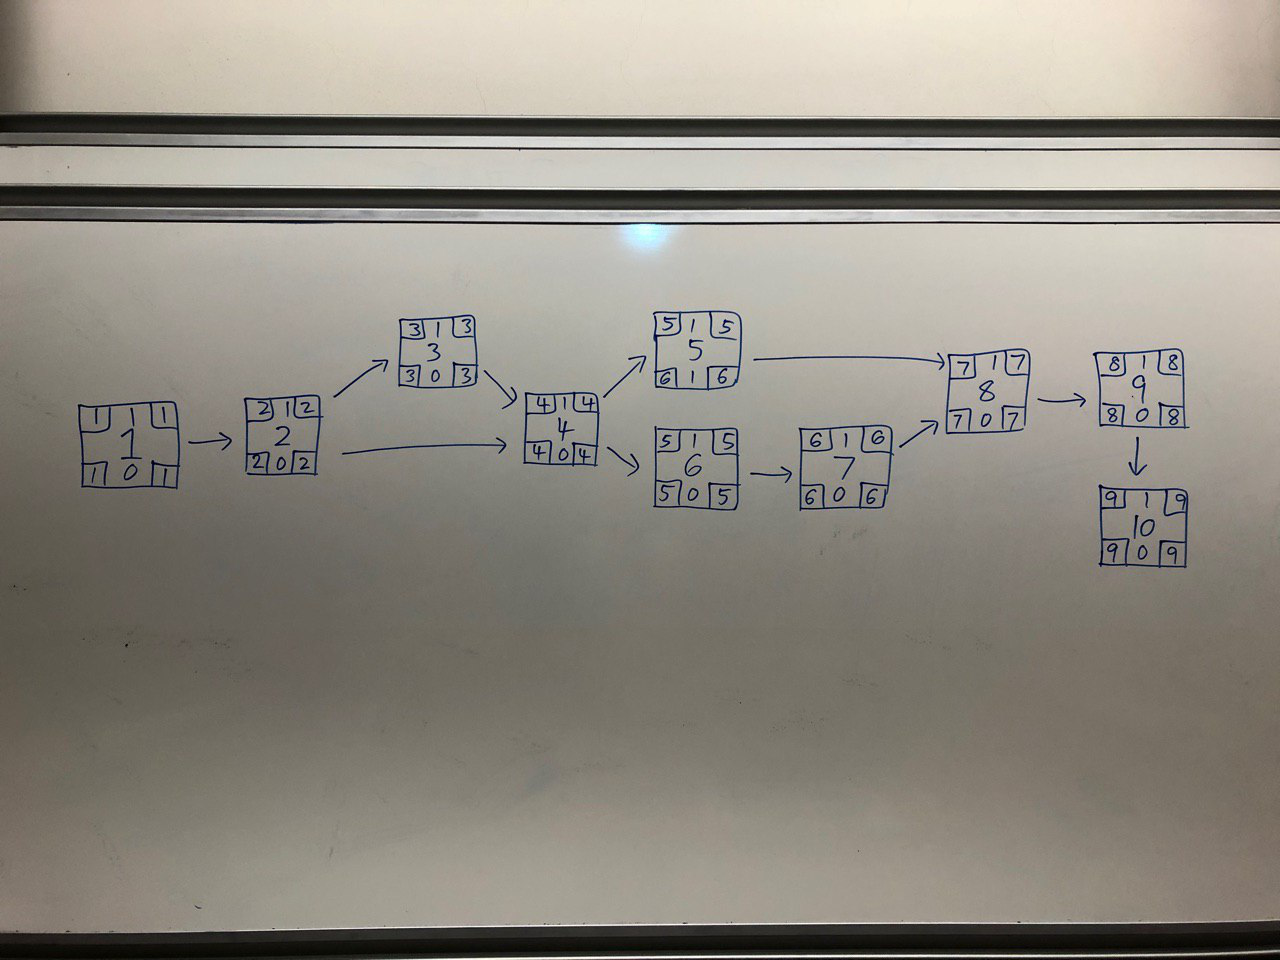 1 1 1
1
1 0 1
2 1 2
2
2 0 2
3 1 3
3
3 0 3
4 1 4
4
4 0 4
5 1 5
5
6 1 6
5 1 5
6
5 0 5
6 1 6
7
6 0 6
7 1 7
8
7 0 7
8 1 8
9
8 0 8
9 1 9
10
9 0 9